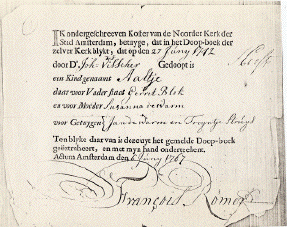 IK ondergeschreeven Koster van de Noorder Kerk der
Stad Amsterdam, betuyge, dat in het Doop-boek der
zelver Kerk blykt, dat op den 27 Juny 1742
door Ds. Joh: Visscher Gedoopt is
een Kind genaamt Aaltje
daar voor Vader staet Evert Blok
en voor Moeder Susanna
voor Getuygen Jan de Warm en
Ten blyke daar van is deeze uyt het gemelde Doop-boek
geëxtraheert, en met myn hand onderteekent.
Actum Amsterdam den 6 Juny 1767
François Römer